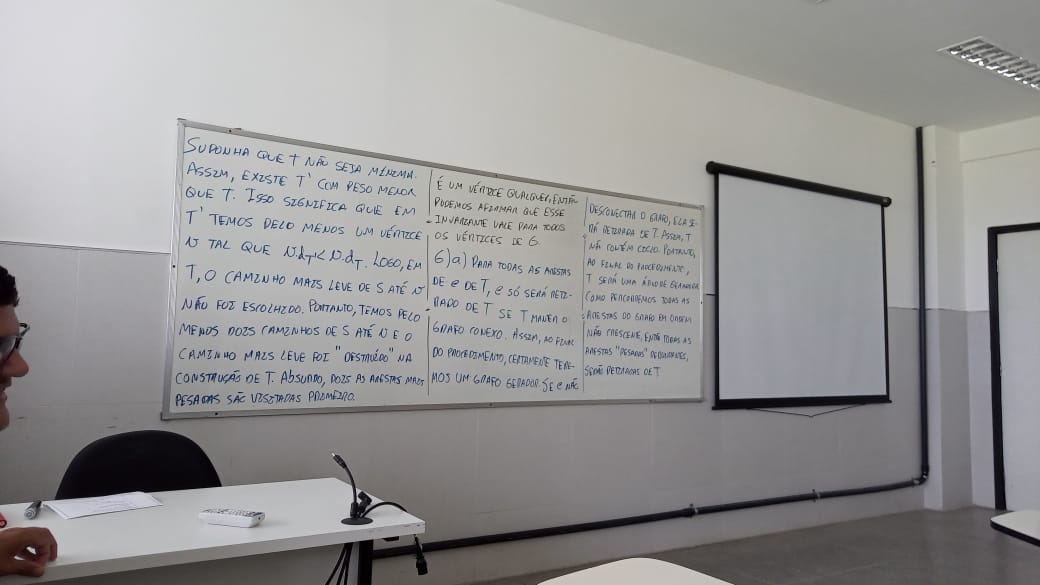 SUPONHA QUE T NÃO SEJA MÍNIMA.
ASSIM, EXISTE T' COM PESO MENOR
QUE T. ISSO SIGNIFICA QUE EM
T' TEMOS PELO MENOS UM VÉRTICE
v TAL QUE v.d_T' < v.d_T. LOGO, EM
T, O CAMINHO MAIS LEVE DE S ATÉ v
NÃO FOI ESCOLHIDO. PORTANTO, TEMOS PELO
MENOS DOIS CAMINHOS DE S ATÉ v E O
CAMINHO MAIS LEVE FOI "DESTRUÍDO" NA
CONSTRUÇÃO DE T. ABSURDO, POIS AS ARESTAS MAIS
PESADAS SÃO VISITADAS PRIMEIRO.
É UM VÉRTICE QUALQUER, ENTÃO
PODEMOS AFIRMAR QUE ESSE
INVARIANTE VALE PARA TODOS
OS VÉRTICES DE G.
6) a) PARA TODAS AS ARESTAS
DE e DE T, e SÓ SERÁ RETI-
RADO DE T SE T MANTER O
GRAFO CONEXO. ASSIM, AO FINAL
DO PROCEDIMENTO, CERTAMENTE TERE-
MOS UM GRAFO GERADOR. SE e NÃO
DESCONECTAR O GRAFO, ELA SE-
RÁ RETIRADA DE T. ASSIM, T
NÃO CONTÉM CICLO. PORTANTO,
AO FINAL DO PROCEDIMENTO,
T SERÁ UMA ÁRVORE GERADORA
COMO PERCORREMOS TODAS AS
ARESTAS DO GRAFO EM ORDEM
NÃO CRESCENE, ENTÃO TODAS AS
ARESTAS "PESADAS" REDUNDANTES,
SERÃO RETIRADAS DE T